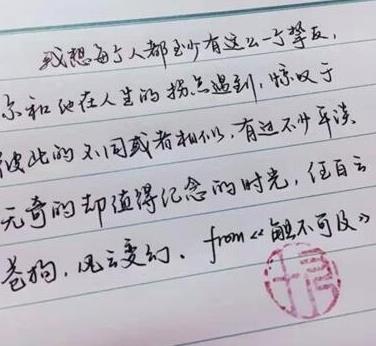 我想每个人都至少有这么一个挚友，
你和他在人生的拐点遇到，惊叹于
彼此的不同或者相似，有过不少平淡
无奇的却值得纪念的时光，任白云
苍狗，风云变幻、from《触不可及》